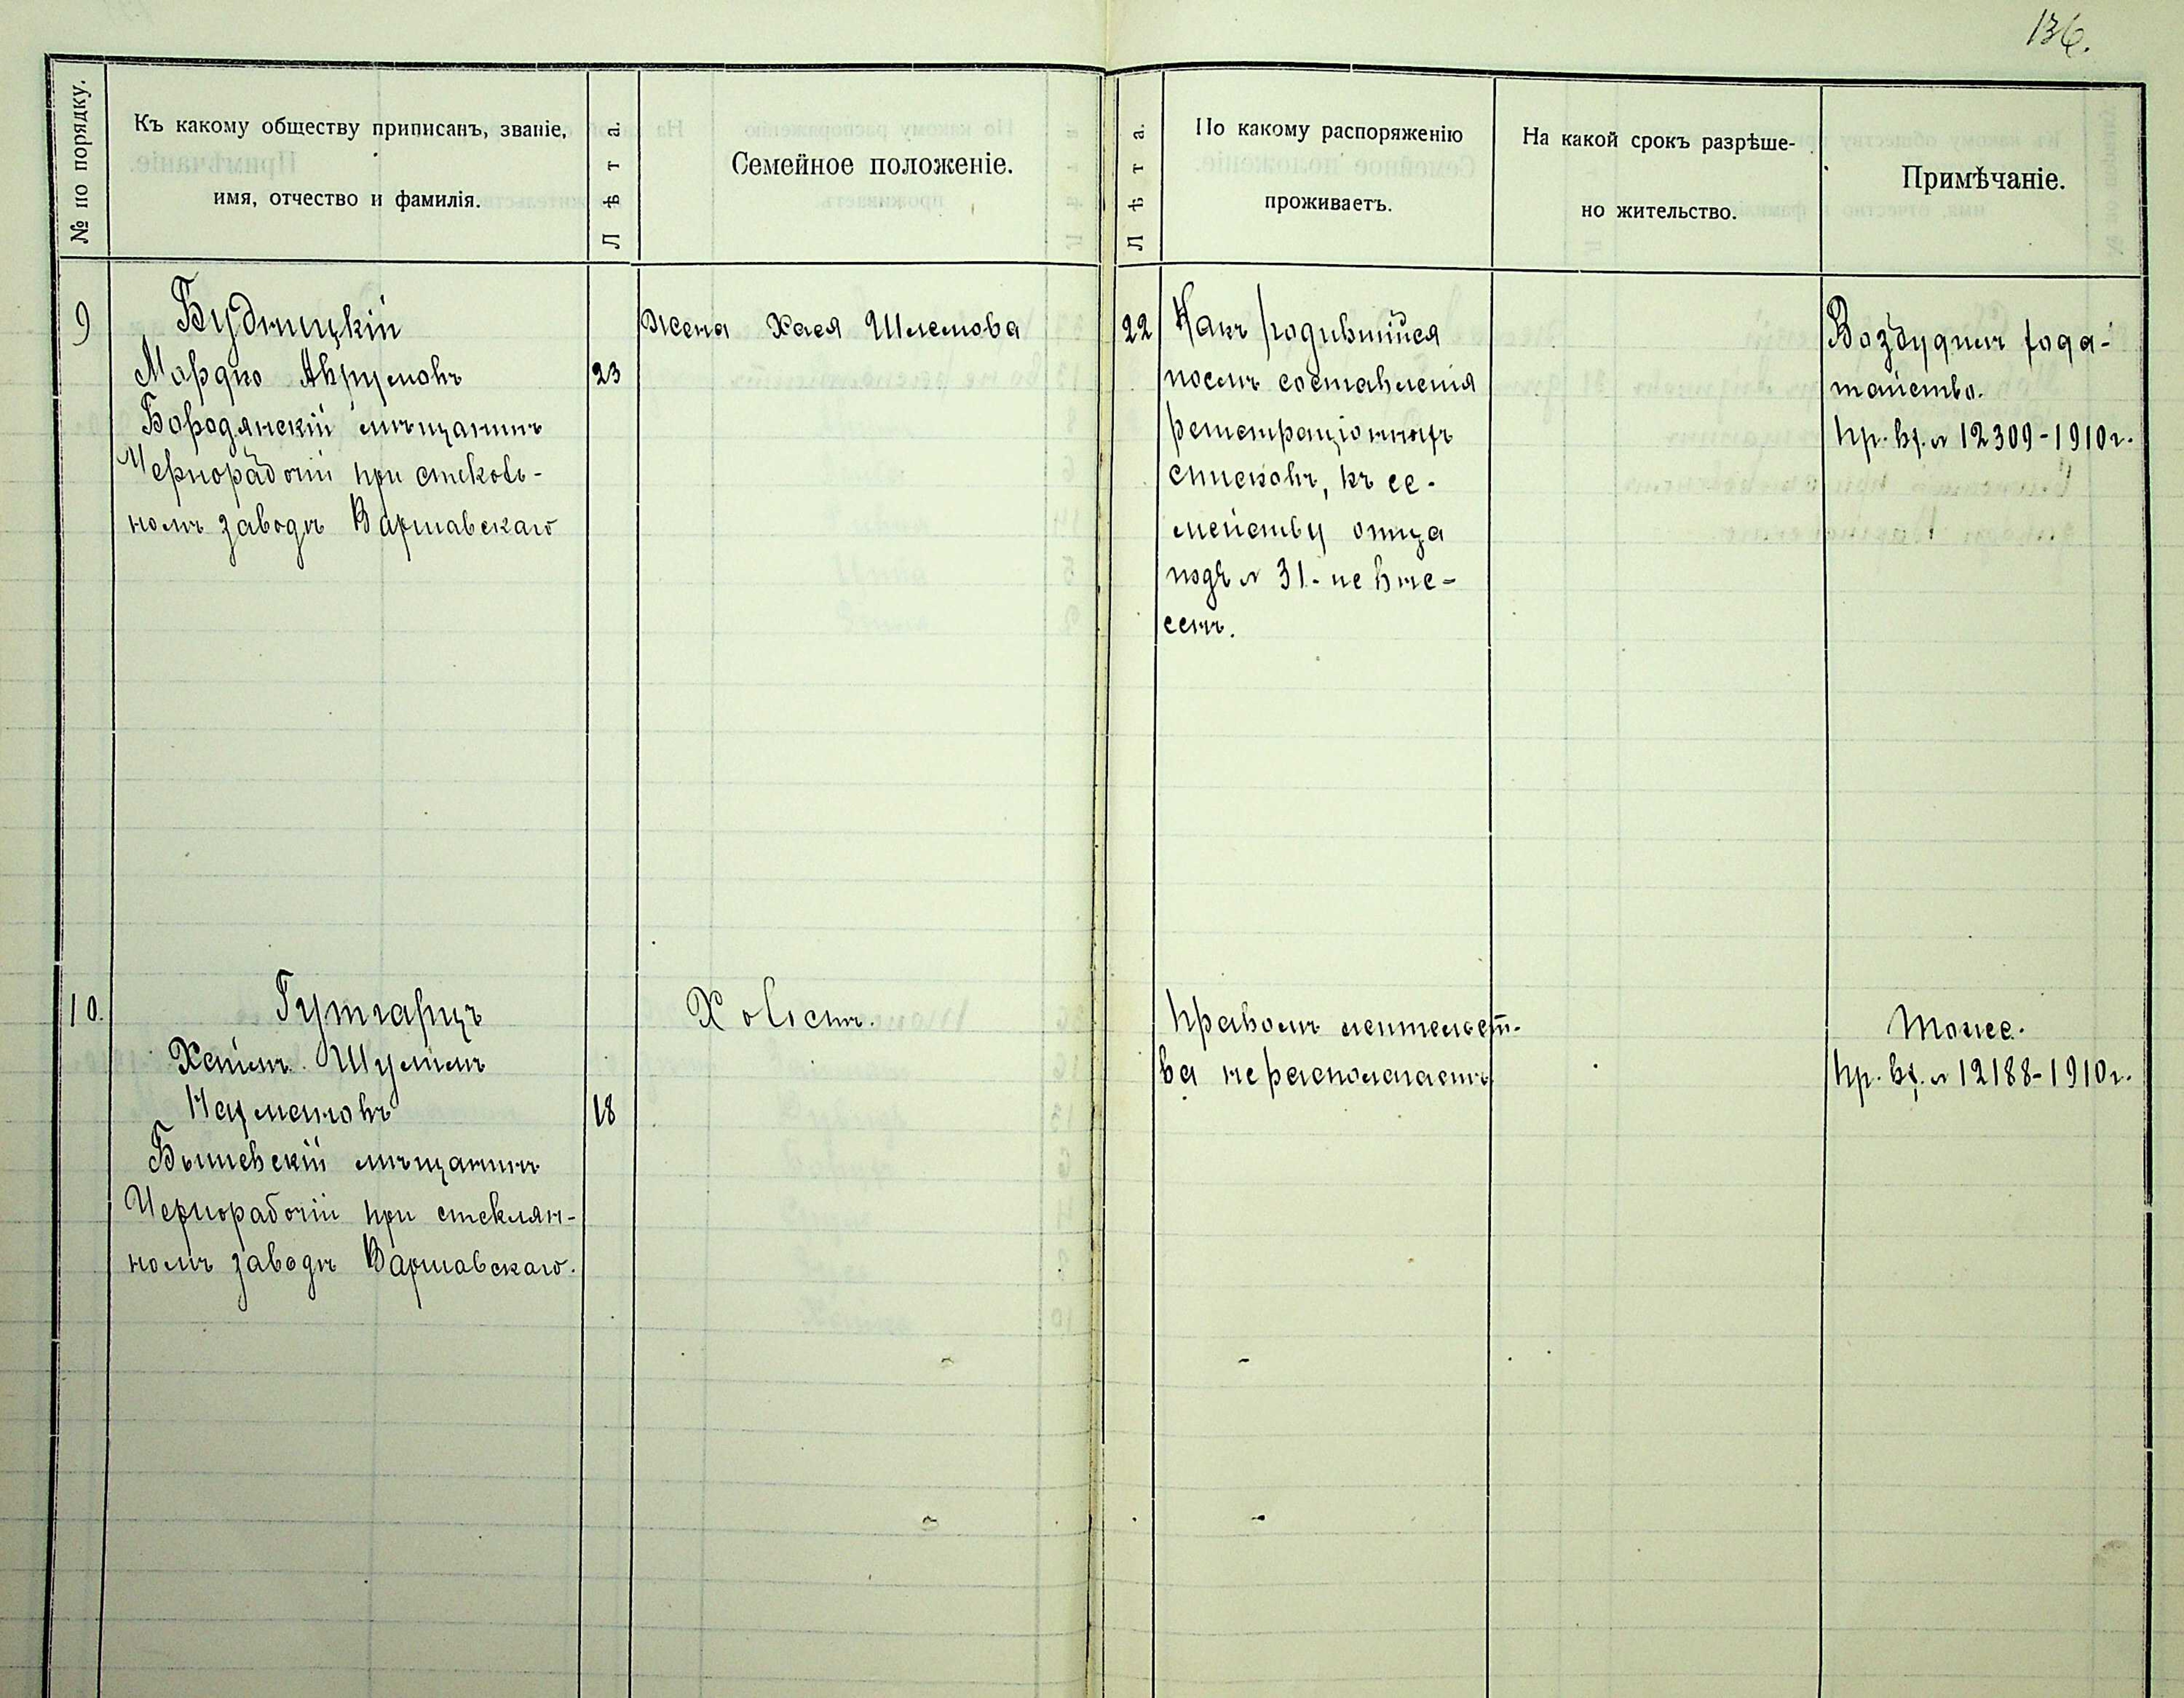 136.
№ по порядку.
Къ какому обществу приписанъ, званіе,
имя, отчество и фамилія.
Лѣта.
Семейное положеніе.
Лѣта.
По какому распоряженію
проживаетъ.
На какой срокъ разрѣше-
но жительство.
Примѣчаніе.
9
Будницкій
Мордко Аврумовъ
23
Бородянскій мѣщанинъ
Чернорабочій при стеколь-
номъ заводѣ Варшавскаго
Жена Хася Шлемова
22
Какъ родившійся
послѣ составленія
регистраціонныхъ
списковъ, къ се-
мейству отца
подъ № 31 - не вне-
сенъ.
Возбудилъ хода-
тайство.
пр. вх. № 12309-1910 г.
10.
Гутгарцъ
Хаимъ Шулимъ
Нахмановъ
18
Бышевскій мѣщанинъ
Чернорабочій при стеклян-
номъ заводѣ Варшавскаго.
Холостъ.
Правомъ жительст-
ва не располагаетъ
Тоже.
пр. вх. № 12188-1910 г.